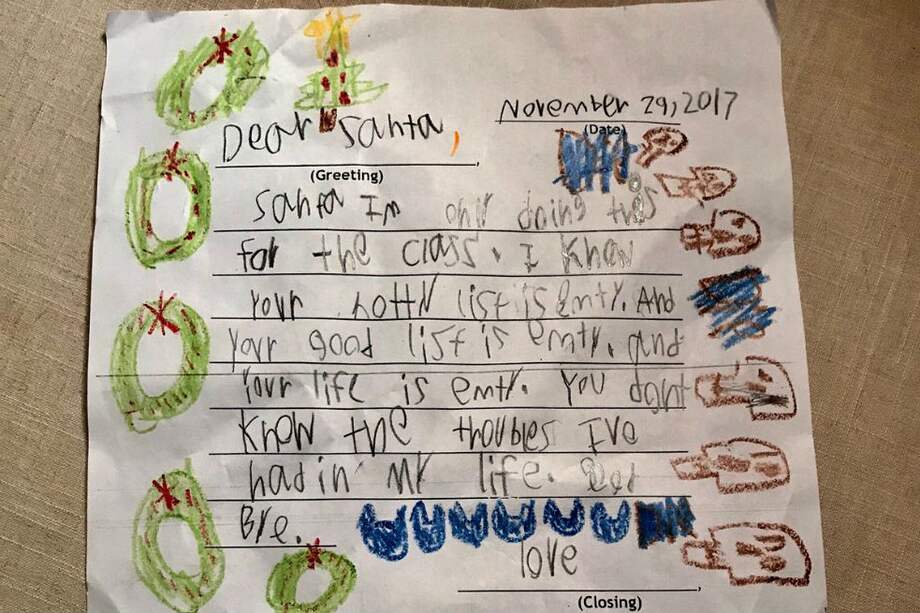 November 29,2017
(Date)
Dear Santa,
(Greeting)
Santa Im only doing this
for the class. I know
Your notty list is emty. And
Your good list is emty. and
Your life is emty. You dont
know the troubles Ive
had in my life. Good
Bye.
love
(Closing)